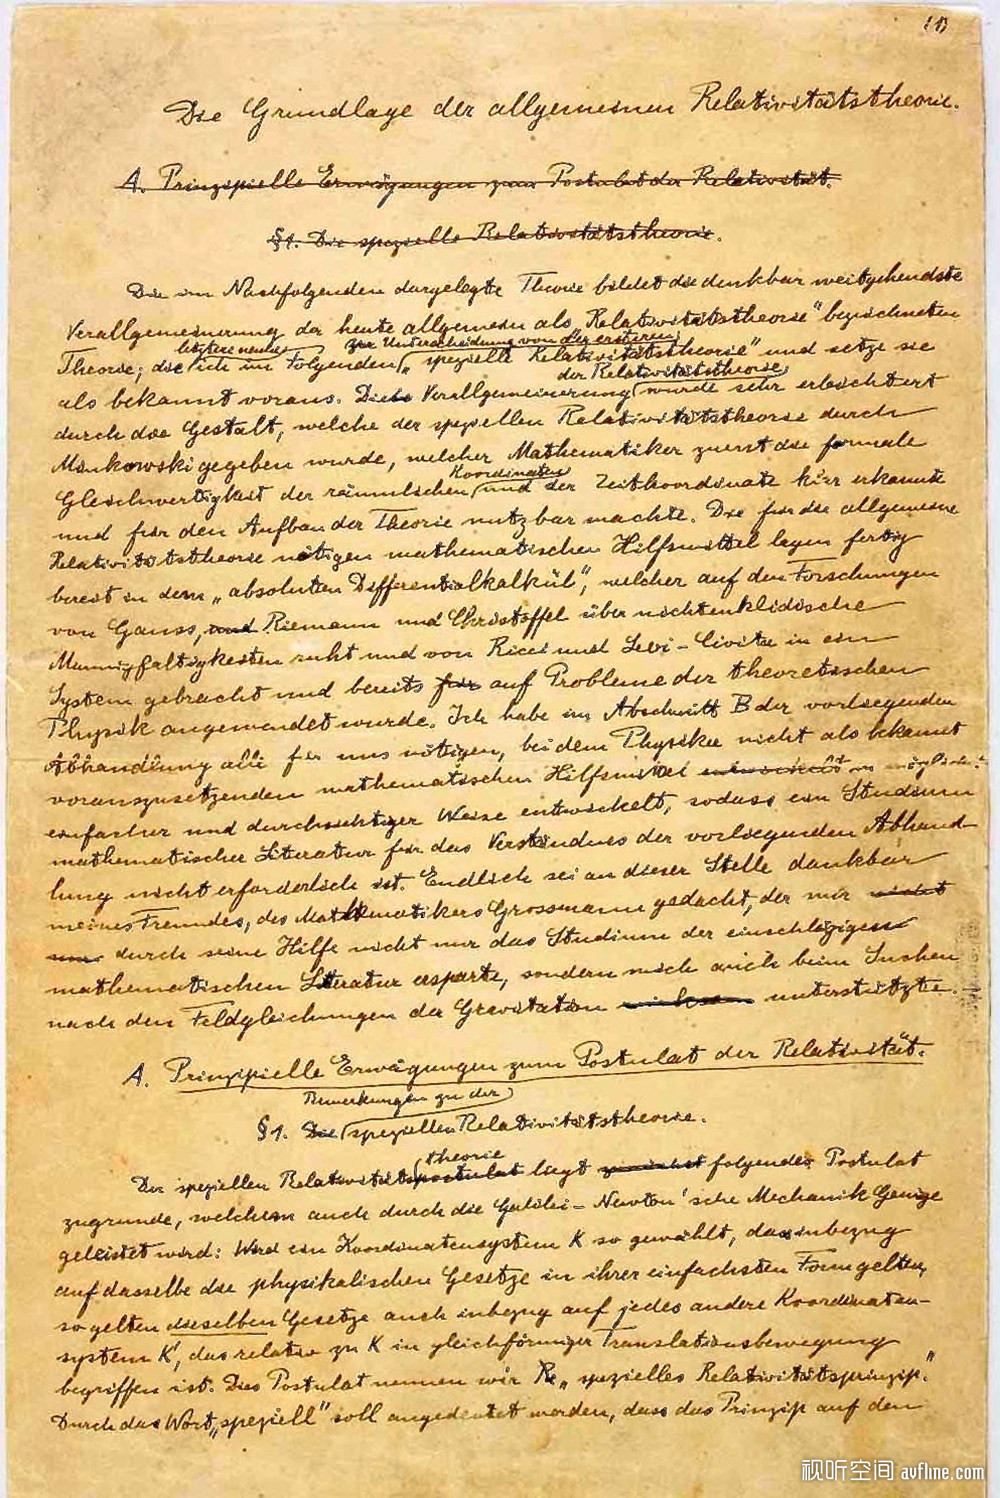 (1)
Die Grundlage der allgemeinen Relativitätstheorie.
A. Prinzipielle Erwägungen zum Postulat der Relativität.
§1. Die spezielle Relativitätstheorie.
Die im Nachfolgenden dargelegte Theorie bildet die denkbar weitgehendste
Verallgemeinerung der heute allgemein als „Relativitätstheorie" bezeichneten
letztere nenne zur Unterscheidung von der ersteren
Theorie; die ich im Folgenden „spezielle Relativitätstheorie" und setze sie
der Relativitätstheorie
als bekannt voraus. Die Verallgemeinerung wurde sehr erleichtert
durch die Gestalt, welche der speziellen Relativitätstheorie durch
Minkowski gegeben wurde, welcher Mathematiker zuerst die formale
Koordinaten
Gleichwertigkeit der räumlichen und der Zeitkoordinate klar erkannte
und für den Aufbau der Theorie nutzbar machte. Die für die allgemeine
Relativitätstheorie nötigen mathematischen Hilfsmittel lagen fertig
bereit in dem „absoluten Differentialkalkül", welcher auf den Forschungen
von Gauss, und Riemann und Christoffel über nichteuklidische
Mannigfaltigkeiten ruht und von Ricci und Levi-Civita in ein
System gebracht und bereits für auf Probleme der theoretischen
Physik angewendet wurde. Ich habe im Abschnitt B der vorliegenden
Abhandlung alle für uns nötigen, bei dem Physiker nicht als bekannt
vorauszusetzenden mathematischen Hilfsmittel in möglichst
einfacher und durchsichtiger Weise entwickelt, sodass ein Studium
mathematischer Literatur für das Verständnis der vorliegenden Abhand-
lung nicht erforderlich ist. Endlich sei an dieser Stelle dankbar
meines Freundes, des Mathematikers Grossmann gedacht, der mir nicht
nur durch seine Hilfe nicht nur das Studium der einschlägigen
mathematischen Literatur ersparte, sondern mich auch beim Suchen
nach den Feldgleichungen der Gravitation unterstützte.
A. Prinzipielle Erwägungen zum Postulat der Relativität.
Bemerkungen zu der
§1. Die speziellen Relativitätstheorie.
theorie
Der speziellen Relativitätspostulat liegt zunächst folgendes Postulat
zugrunde, welchem auch durch die Galilei-Newton'sche Mechanik Genüge
geleistet wird: Wird ein Koordinatensystem K so gewählt, dass inbezug
auf dasselbe die physikalischen Gesetze in ihrer einfachsten Form gelten,
so gelten dieselben Gesetze auch inbezug auf jedes andere Koordinaten-
system K', das relativ zu K in gleichförmiger Translationsbewegung
begriffen ist. Dies Postulat nennen wir „spezielles Relativitätsprinzip."
Durch das Wort „speziell" soll angedeutet werden, dass das Prinzip auf den
视听空间 avfline.com